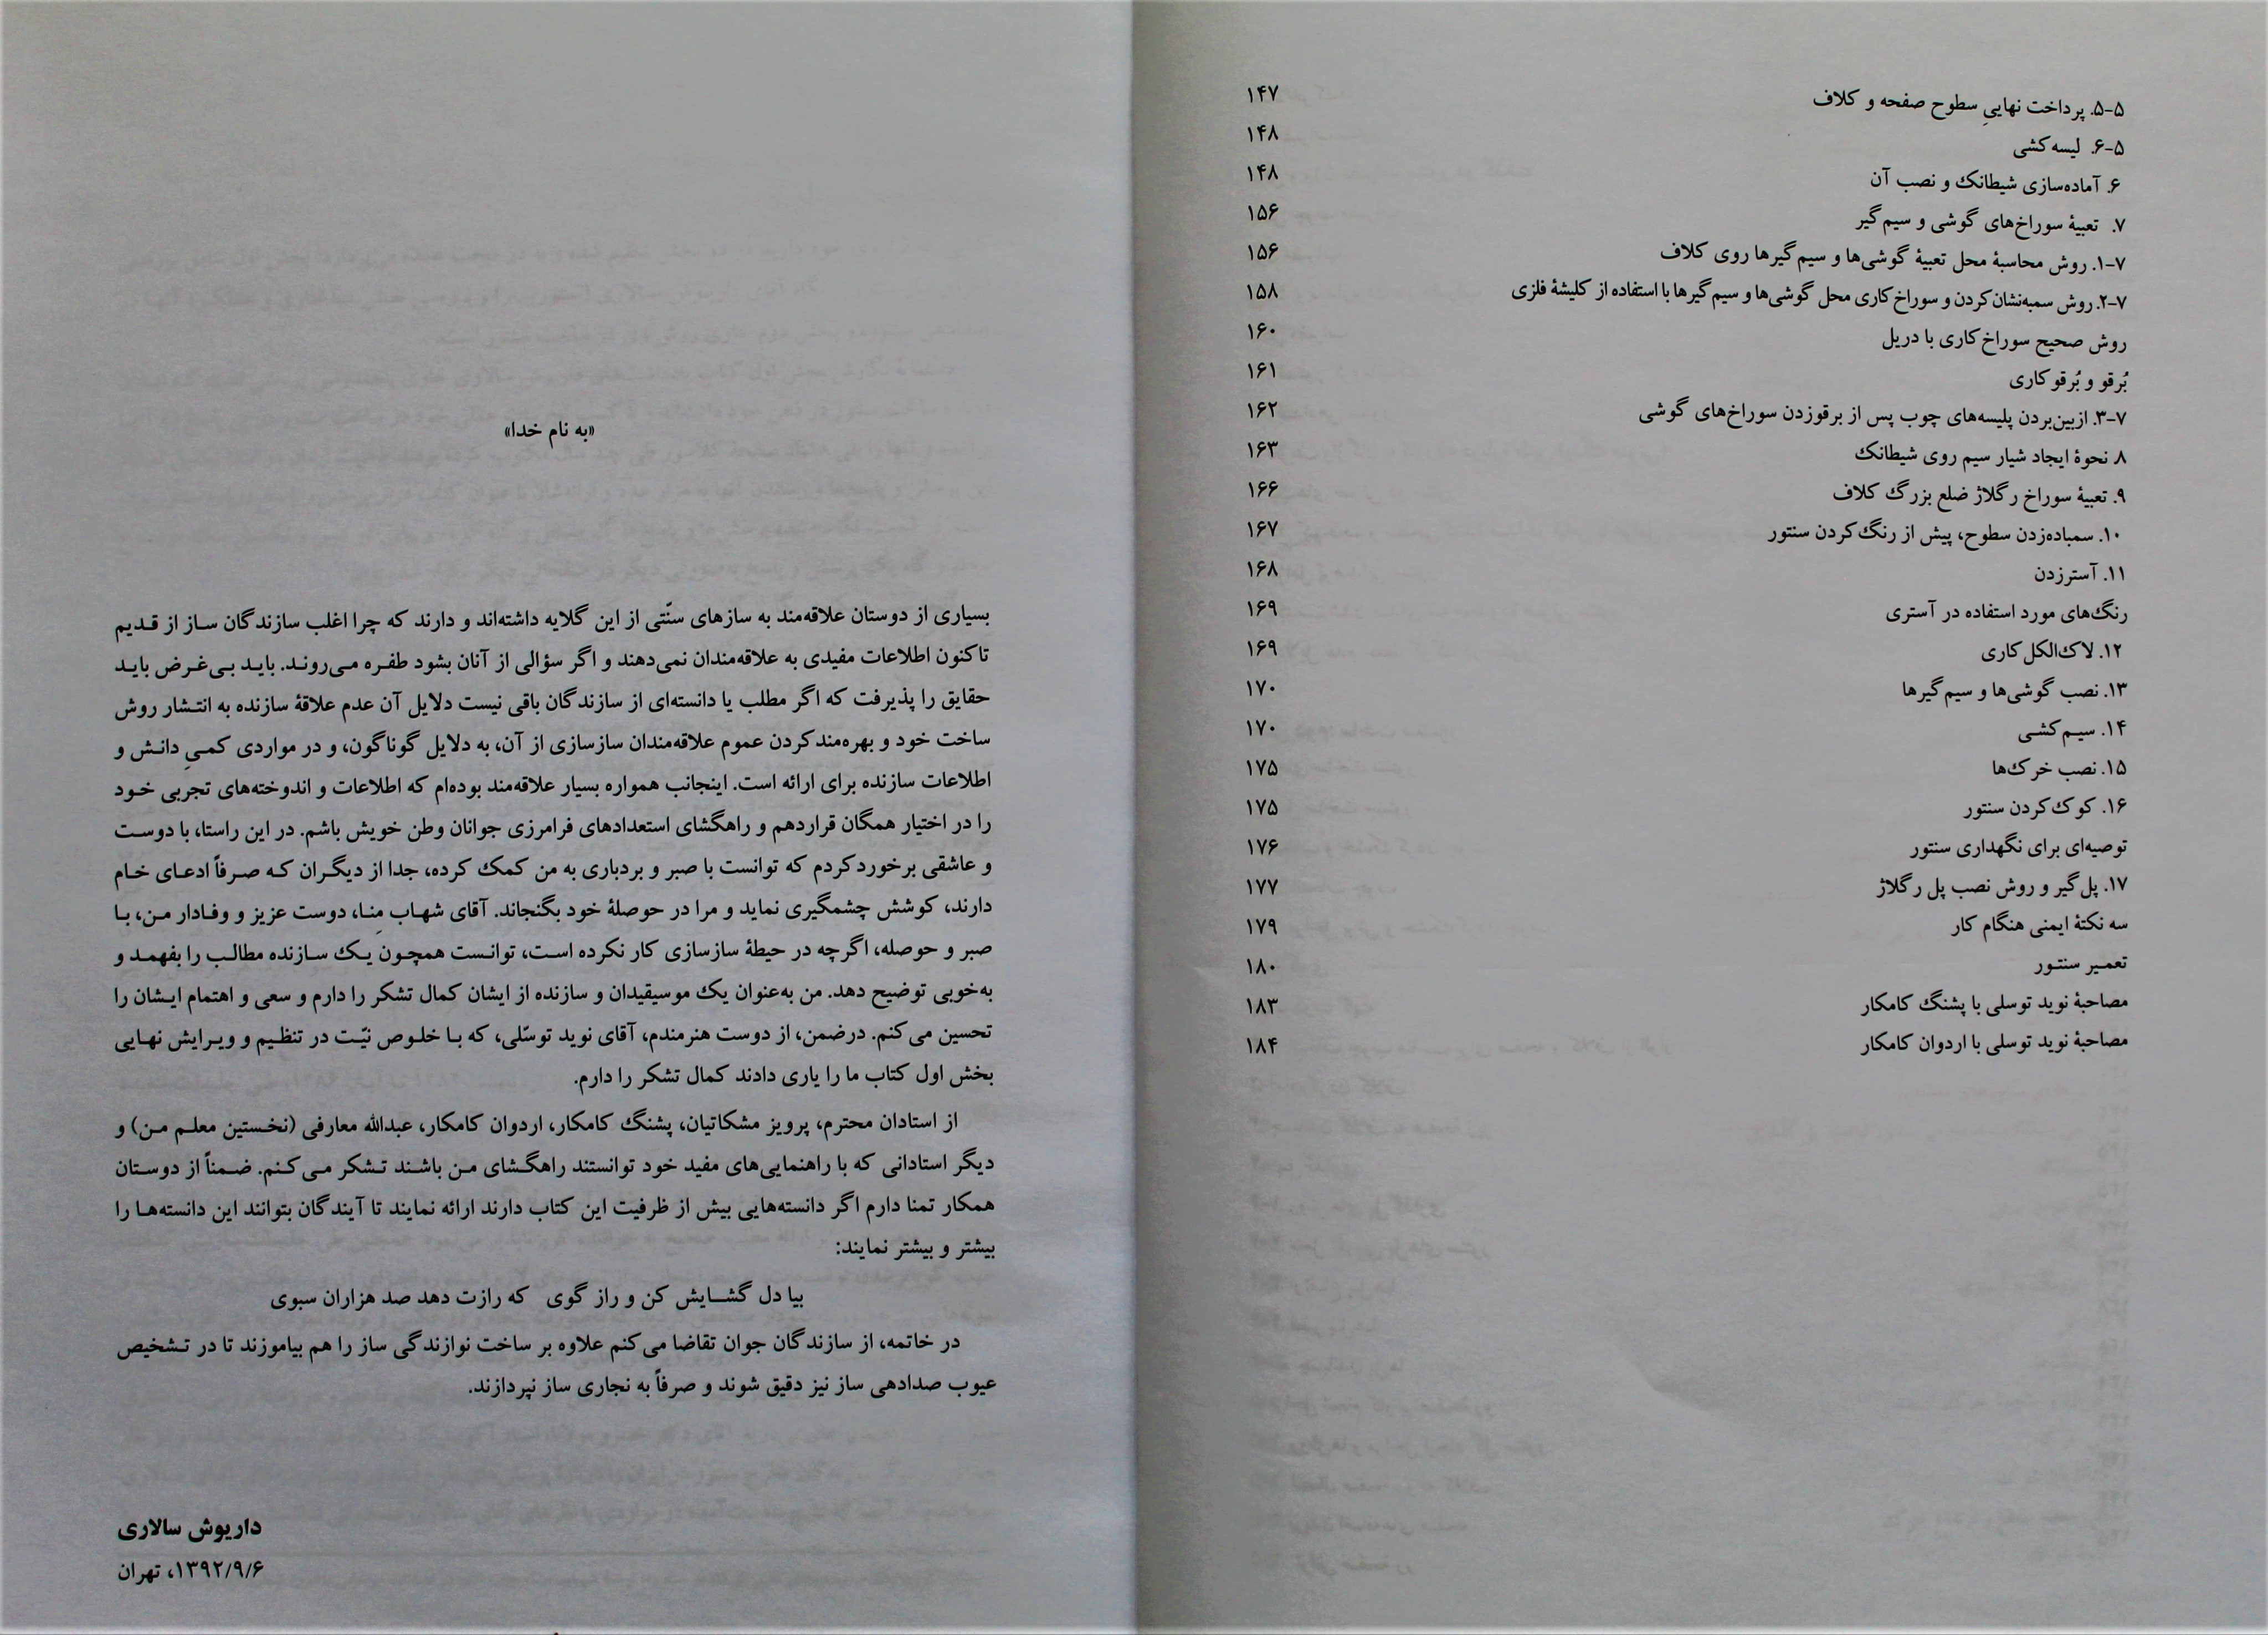 ۵-۵. پرداخت نهاییِ سطوح صفحه و کلاف ۱۴۷
۵-۶. لیسه‌کشی ۱۴۸
۶. آماده‌سازی شیطانک و نصب آن ۱۴۸
۷. تعبیهٔ سوراخ‌های گوشی و سیم‌گیر ۱۵۶
۷-۱. روش محاسبهٔ محل تعبیهٔ گوشی‌ها و سیم‌گیرها روی کلاف ۱۵۶
۷-۲. روش سمبه‌نشان‌کردن و سوراخ‌کاری محل گوشی‌ها و سیم‌گیرها با استفاده از کلیشهٔ فلزی ۱۵۸
روش صحیح سوراخ‌کاری با دریل ۱۶۰
بُرقو و بُرقوکاری ۱۶۱
۷-۳. ازبین‌بردن پلیسه‌های چوب پس از برقوزدن سوراخ‌های گوشی ۱۶۲
۸. نحوهٔ ایجاد شیار سیم روی شیطانک ۱۶۳
۹. تعبیهٔ سوراخ رگلاژ ضلع بزرگ کلاف ۱۶۶
۱۰. سمباده‌زدن سطوح، پیش از رنگ‌کردن سنتور ۱۶۷
۱۱. آسترزدن ۱۶۸
رنگ‌های مورد استفاده در آستری ۱۶۹
۱۲. لاک‌الکل‌کاری ۱۶۹
۱۳. نصب گوشی‌ها و سیم‌گیرها ۱۷۰
۱۴. سیم‌کشی ۱۷۰
۱۵. نصب خرک‌ها ۱۷۵
۱۶. کوک‌کردن سنتور ۱۷۵
توصیه‌ای برای نگهداری سنتور ۱۷۶
۱۷. پل‌گیر و روش نصب پل رگلاژ ۱۷۷
سه نکتهٔ ایمنی هنگام کار ۱۷۹
تعمیر سنتور ۱۸۰
مصاحبهٔ نوید توسلی با پشنگ کامکار ۱۸۳
مصاحبهٔ نوید توسلی با اردوان کامکار ۱۸۴
«به نام خدا»
بسیاری از دوستان علاقه‌مند به سازهای سنّتی از این گلایه داشته‌اند و دارند که چرا اغلب سازندگان ساز از قدیم
تاکنون اطلاعات مفیدی به علاقه‌مندان نمی‌دهند و اگر سؤالی از آنان بشود طفره می‌روند. باید بی‌غرض باید
حقایق را پذیرفت که اگر مطلب یا دانسته‌ای از سازندگان باقی نیست دلایل آن عدم علاقهٔ سازنده به انتشار روش
ساخت خود و بهره‌مندکردن عموم علاقه‌مندان سازسازی از آن، به دلایل گوناگون، و در مواردی کمیِ دانش و
اطلاعات سازنده برای ارائه است. اینجانب همواره بسیار علاقه‌مند بوده‌ام که اطلاعات و اندوخته‌های تجربی خود
را در اختیار همگان قراردهم و راهگشای استعدادهای فرامرزی جوانان وطن خویش باشم. در این راستا، با دوست
و عاشقی برخوردکردم که توانست با صبر و بردباری به من کمک کرده، جدا از دیگران که صرفاً ادعای خام
دارند، کوشش چشمگیری نماید و مرا در حوصلهٔ خود بگنجاند. آقای شهاب مِنا، دوست عزیز و وفادار من، با
صبر و حوصله، اگرچه در حیطهٔ سازسازی کار نکرده است، توانست همچون یک سازنده مطالب را بفهمد و
به‌خوبی توضیح دهد. من به‌عنوان یک موسیقیدان و سازنده از ایشان کمال تشکر را دارم و سعی و اهتمام ایشان را
تحسین می‌کنم. درضمن، از دوست هنرمندم، آقای نوید توسّلی، که با خلوص نیّت در تنظیم و ویرایش نهایی
بخش اول کتاب ما را یاری دادند کمال تشکر را دارم.
از استادان محترم، پرویز مشکاتیان، پشنگ کامکار، اردوان کامکار، عبدالله معارفی (نخستین معلم من) و
دیگر استادانی که با راهنمایی‌های مفید خود توانستند راهگشای من باشند تشکر می‌کنم. ضمناً از دوستان
همکار تمنا دارم اگر دانسته‌هایی بیش از ظرفیت این کتاب دارند ارائه نمایند تا آیندگان بتوانند این دانسته‌ها را
بیشتر و بیشتر نمایند:
بیا دل گشایش کن و راز گوی که رازت دهد صد هزاران سبوی
در خاتمه، از سازندگان جوان تقاضا می‌کنم علاوه بر ساخت نوازندگی ساز را هم بیاموزند تا در تشخیص
عیوب صدادهی ساز نیز دقیق شوند و صرفاً به نجاری ساز نپردازند.
داریوش سالاری
۱۳۹۲/۹/۶، تهران